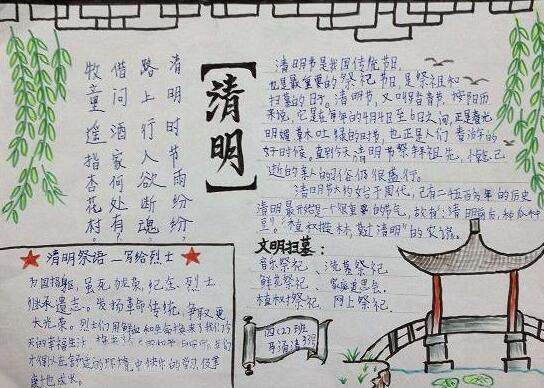 清明时节雨纷纷，
路上行人欲断魂。
借问酒家何处有，
牧童遥指杏花村。
【清明】
清明节是我国传统节日，
也是最重要的祭祀节日，是祭祖和
扫墓的日子。清明节，又叫踏青节，按阳历
来说，它是在每年的4月4日至6日之间，正是春光
明媚草木吐绿的时节，也正是人们春游的
好时候，
清明节祭拜祖先，悼念已
逝的亲人的习俗仍很盛行。
清明节大约始于周代，已有二千五百多年的历史
清明最开始是一个很重要的节气，
清明前后，种瓜种
豆"。"植树造林，莫过清明"的农谚。
文明扫墓：
音乐祭祀、
鲜花祭祀
植树祭祀、网上祭祀
清明祭语—写给烈士
为国捐躯，虽死犹荣，纪念烈士
继承遗志。发扬革命传统，争取更
大光荣。烈士们用鲜血和
天的幸福生活
四(2)班